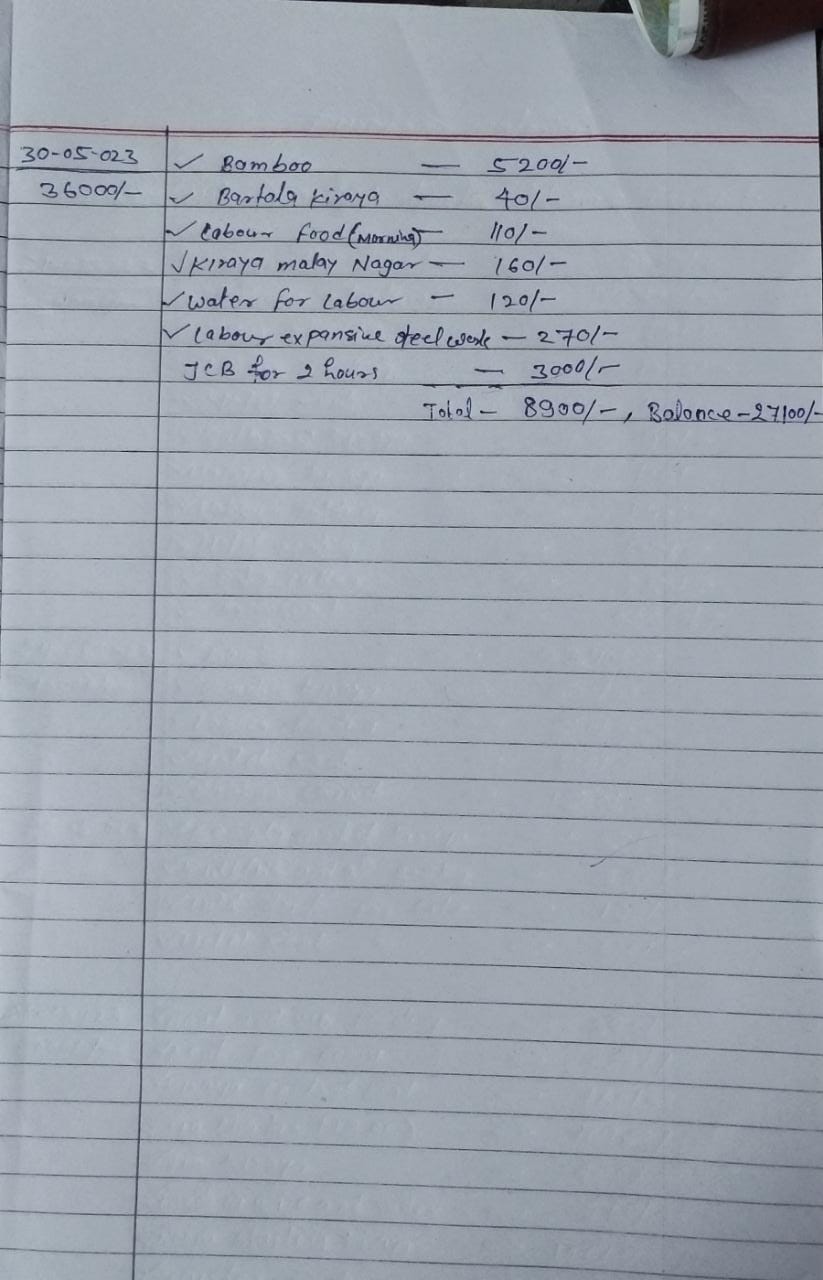 30-05-023 ✓ Bamboo — 5200/-
36000/- ✓ Bartola kiraya — 40/-
✓ Labour food (Morning) — 110/-
✓ Kiraya malay Nagar — 160/-
✓ water for Labour — 120/-
✓ Labour expansive steel work — 270/-
JCB for 2 hours — 3000/-
Total - 8900/-, Balance - 27100/-